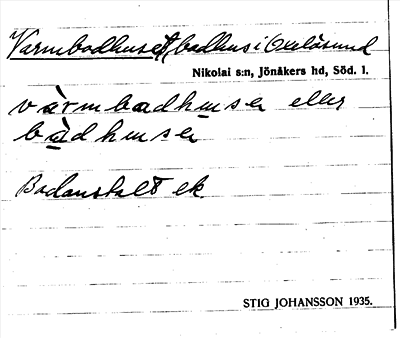 Varmbadhuset, badhus i Oxelösund
Nikolai s:n, Jönåkers hd, Söd. l.
vàrmbadhuset eller
bàdhuset
Badanstalt ek.
STIG JOHANSSON 1935.